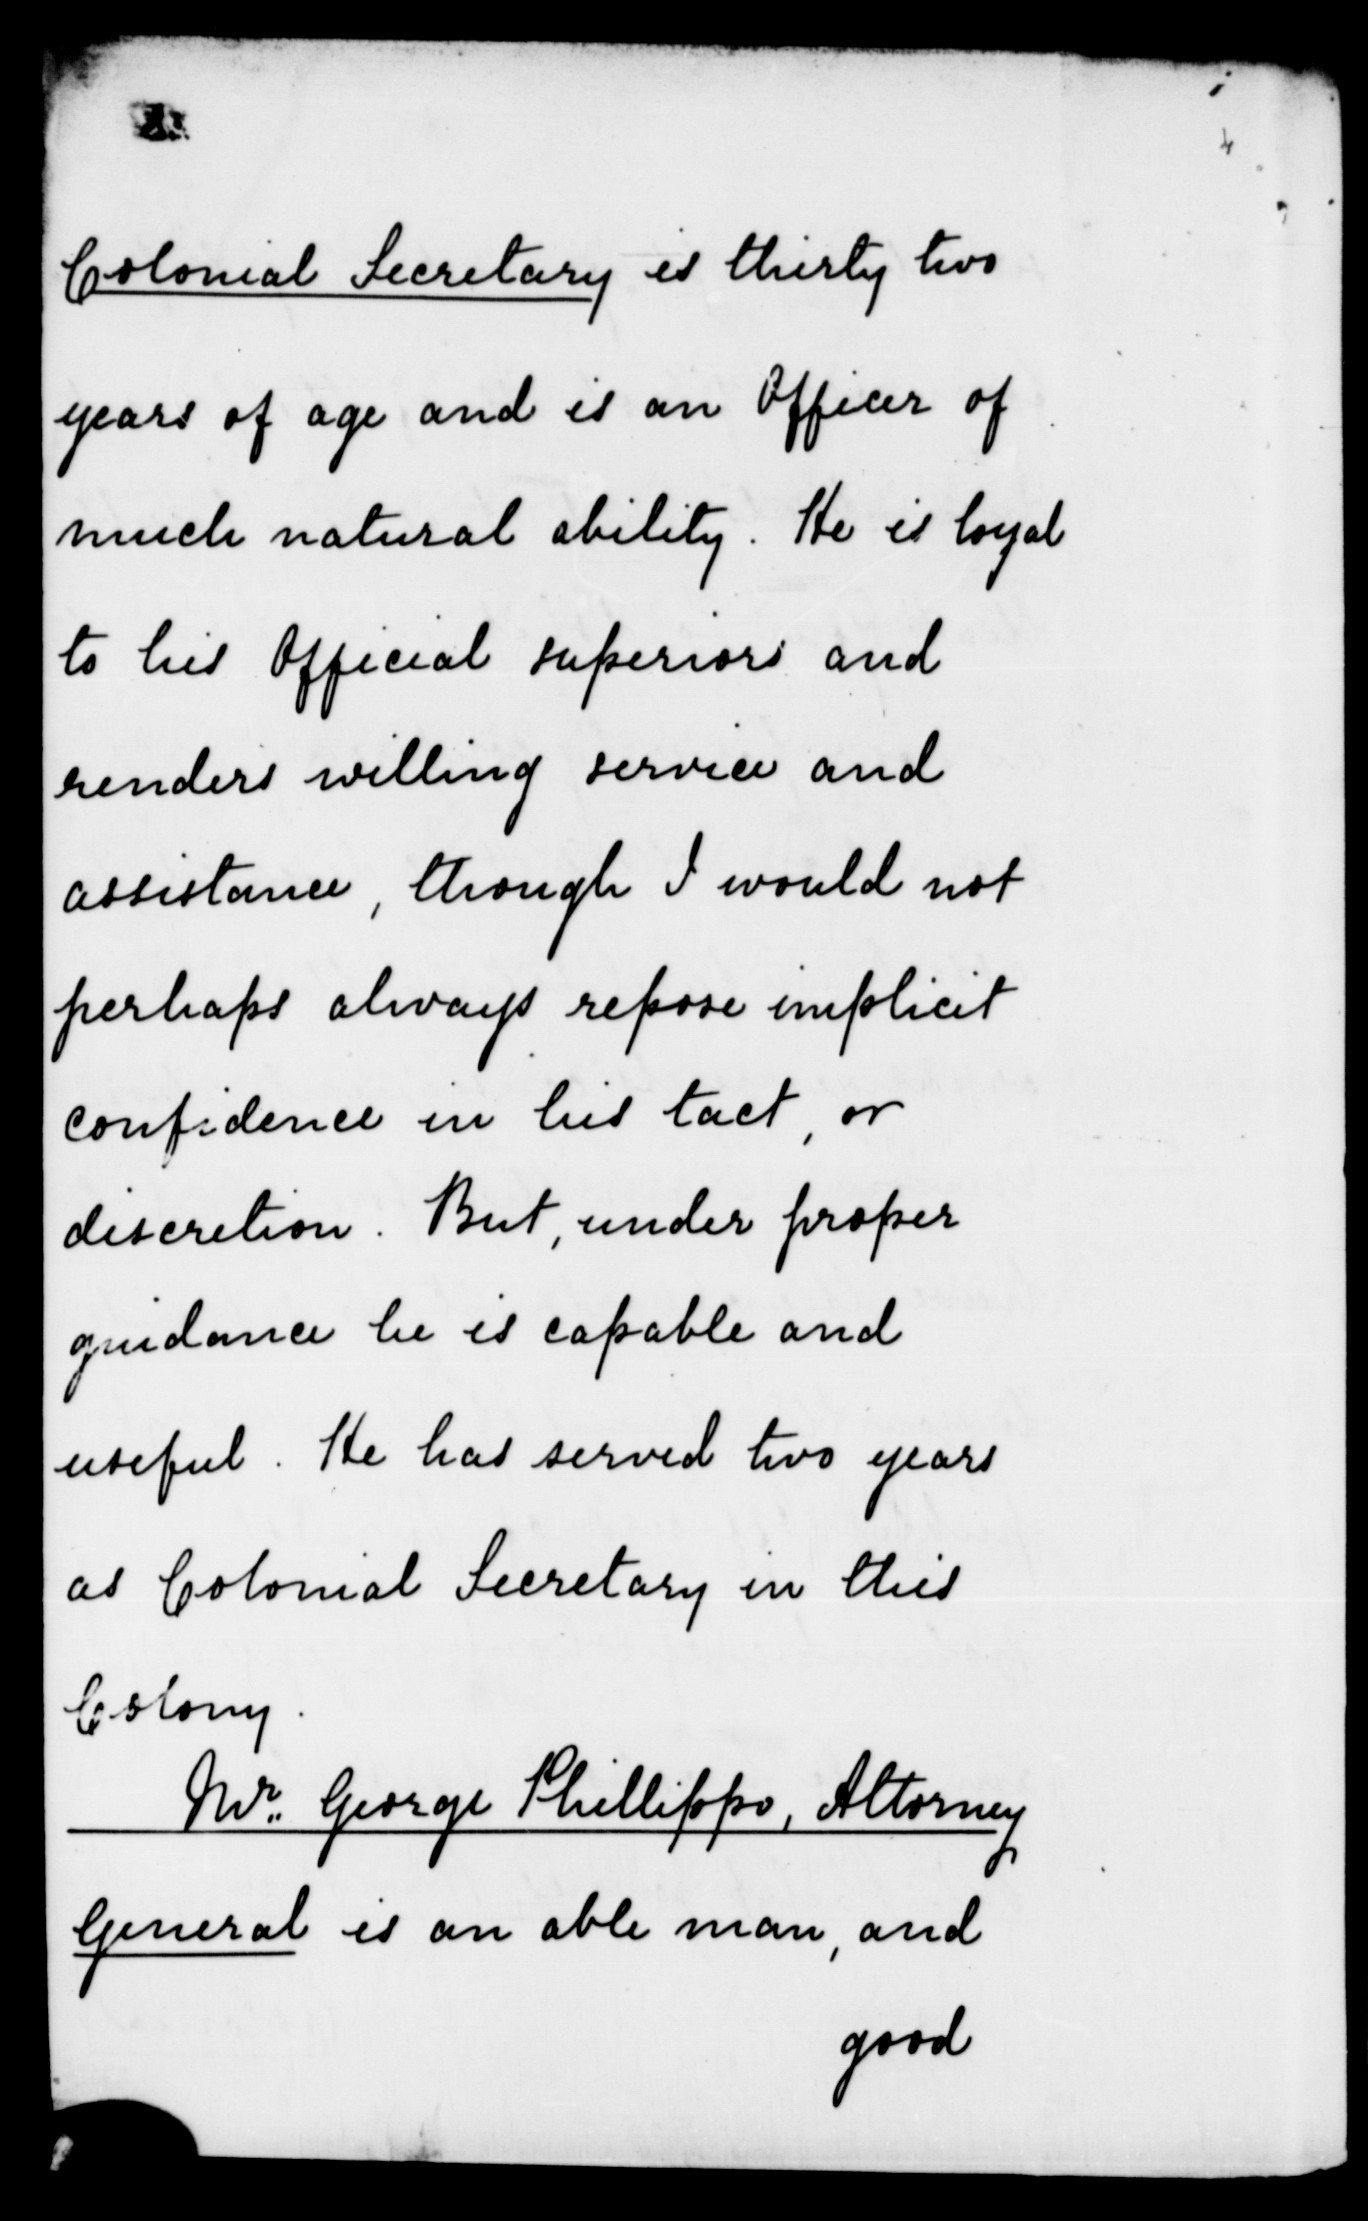 Colonial Secretary is thirty two
years of age and is an Officer of
much natural ability. He is loyal
to his Official superiors and
renders willing service and
assistance, though I would not
perhaps always repose implicit
confidence in his tact, or
discretion. But, under proper
guidance he is capable and
useful. He has served two years
as Colonial Secretary in this
Colony.
Mr. George Phillippo, Attorney
General is an able man, and
good